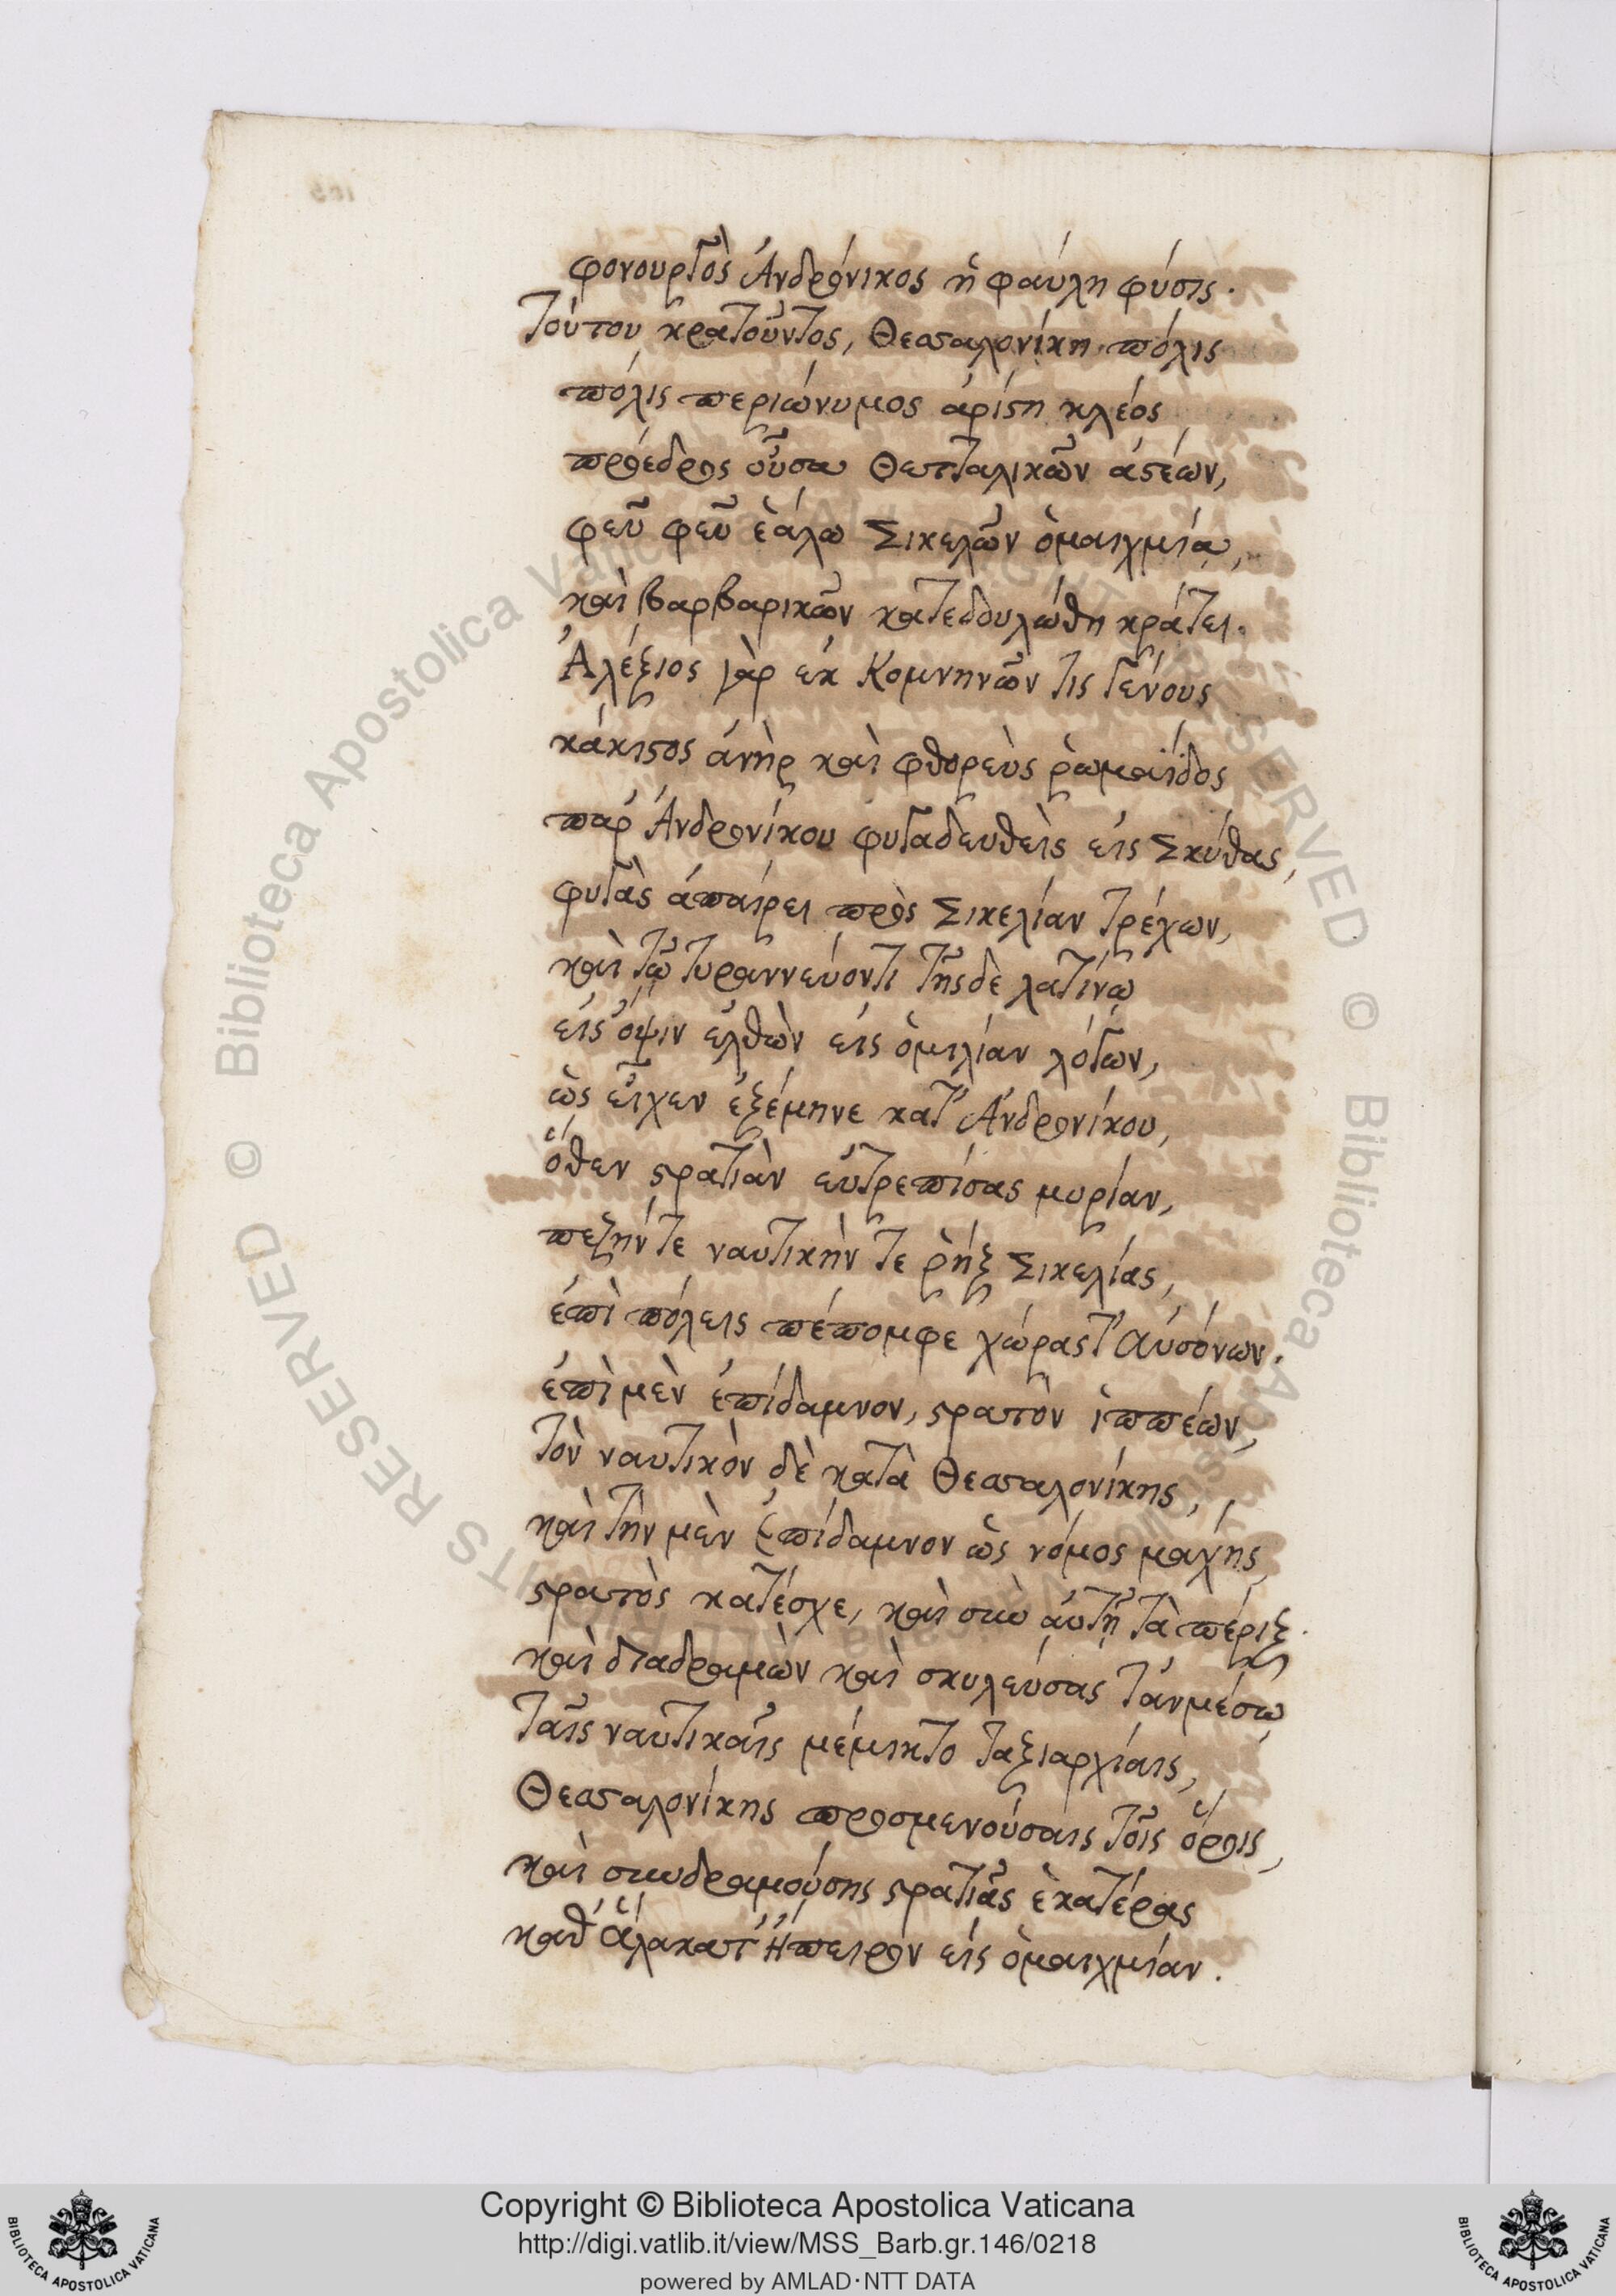 φονουργὸς Ἀνδρόνικος ἡ φαύλη φύσις.
Τούτου κρατοῦντος, Θεσσαλονίκη πόλις
πόλις περιώνυμος ἀρίστη κλέος
πρόεδρος οὖσα Θετταλικῶν ἀστέων,
φεῦ φεῦ ἑάλω Σικελῶν ὁμαιχμία,
καὶ βαρβαρικῶν κατεδουλώθη κράτει.
Ἀλέξιος γὰρ ἐκ Κομνηνῶν τις γένους
κάκιστος ἀνὴρ καὶ φθορεὺς ῥωμαΐδος
παρ' Ἀνδρονίκου φυγαδευθεὶς εἰς Σκύθας,
φυγὰς ἀπαίρει πρὸς Σικελίαν τρέχων,
καὶ τῷ τυραννεύοντι τῆσδε λατίνῳ
εἰς ὄψιν ἐλθὼν εἰς ὁμιλίαν λόγων,
ὡς εἶχεν ἐξέμηνε κατ' Ἀνδρονίκου,
ὅθεν στρατιὰν εὐτρεπίσας μυρίαν,
πεζήν τε ναυτικήν τε ῥὴξ Σικελίας,
ἐπὶ πόλεις πέπομφε χώρας τ' Αὐσόνων.
ἐπὶ μὲν ἐπίδαμνον, στρατὸν ἱππέων,
τὸν ναυτικὸν δὲ κατὰ Θεσσαλονίκης,
καὶ τὴν μὲν Ἐπίδαμνον ὡς νόμος μάχης,
στρατὸς κατέσχε, καὶ σὺν αὐτῇ τὰ πέριξ.
καὶ διαδραμὼν καὶ σκυλεύσας τἀνμέσῳ
ταῖς ναυτικαῖς μέμικτο ταξιαρχίαις,
Θεσσαλονίκης προσμενούσαις τοῖς ὅροις,
καὶ συνδραμούσης στρατιᾶς ἑκατέρας
καθ' ἅλα κατ' Ἤπειρον εἰς ὁμαιχμίαν.
Copyright © Biblioteca Apostolica Vaticana
http://digi.vatlib.it/view/MSS_Barb.gr.146/0218
powered by AMLAD·NTT DATA